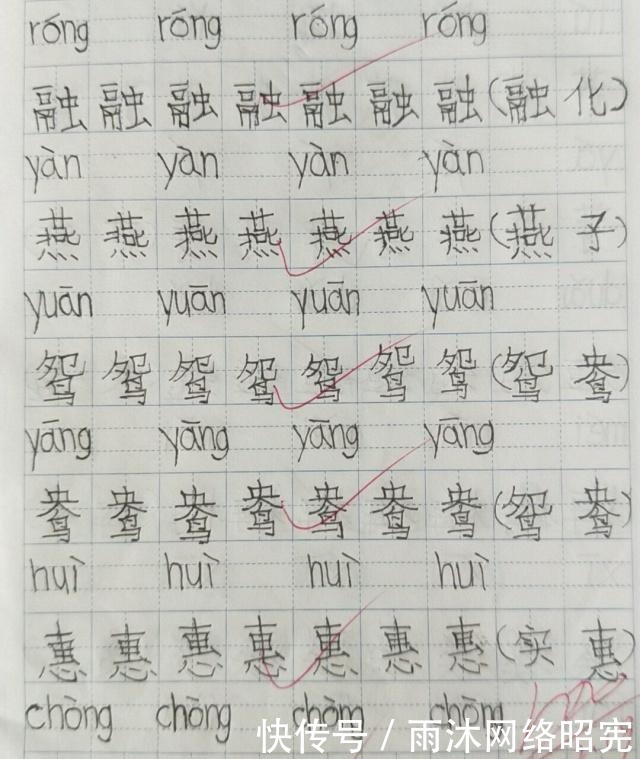 róng róng róng róng
融 融 融 融 融 融 融 (融 化)
yàn yàn yàn yàn
燕 燕 燕 燕 燕 燕 燕 (燕 子)
yuān yuān yuān yuān
鸳 鸳 鸳 鸳 鸳 鸳 鸳 (鸳 鸯)
yāng yāng yāng yāng
鸯 鸯 鸯 鸯 鸯 鸯 鸯 (鸳 鸯)
huì huì huì huì
惠 惠 惠 惠 惠 惠 惠 (实 惠)
chòng chòng chòng chòng
快传号 / 雨沐网络昭宪